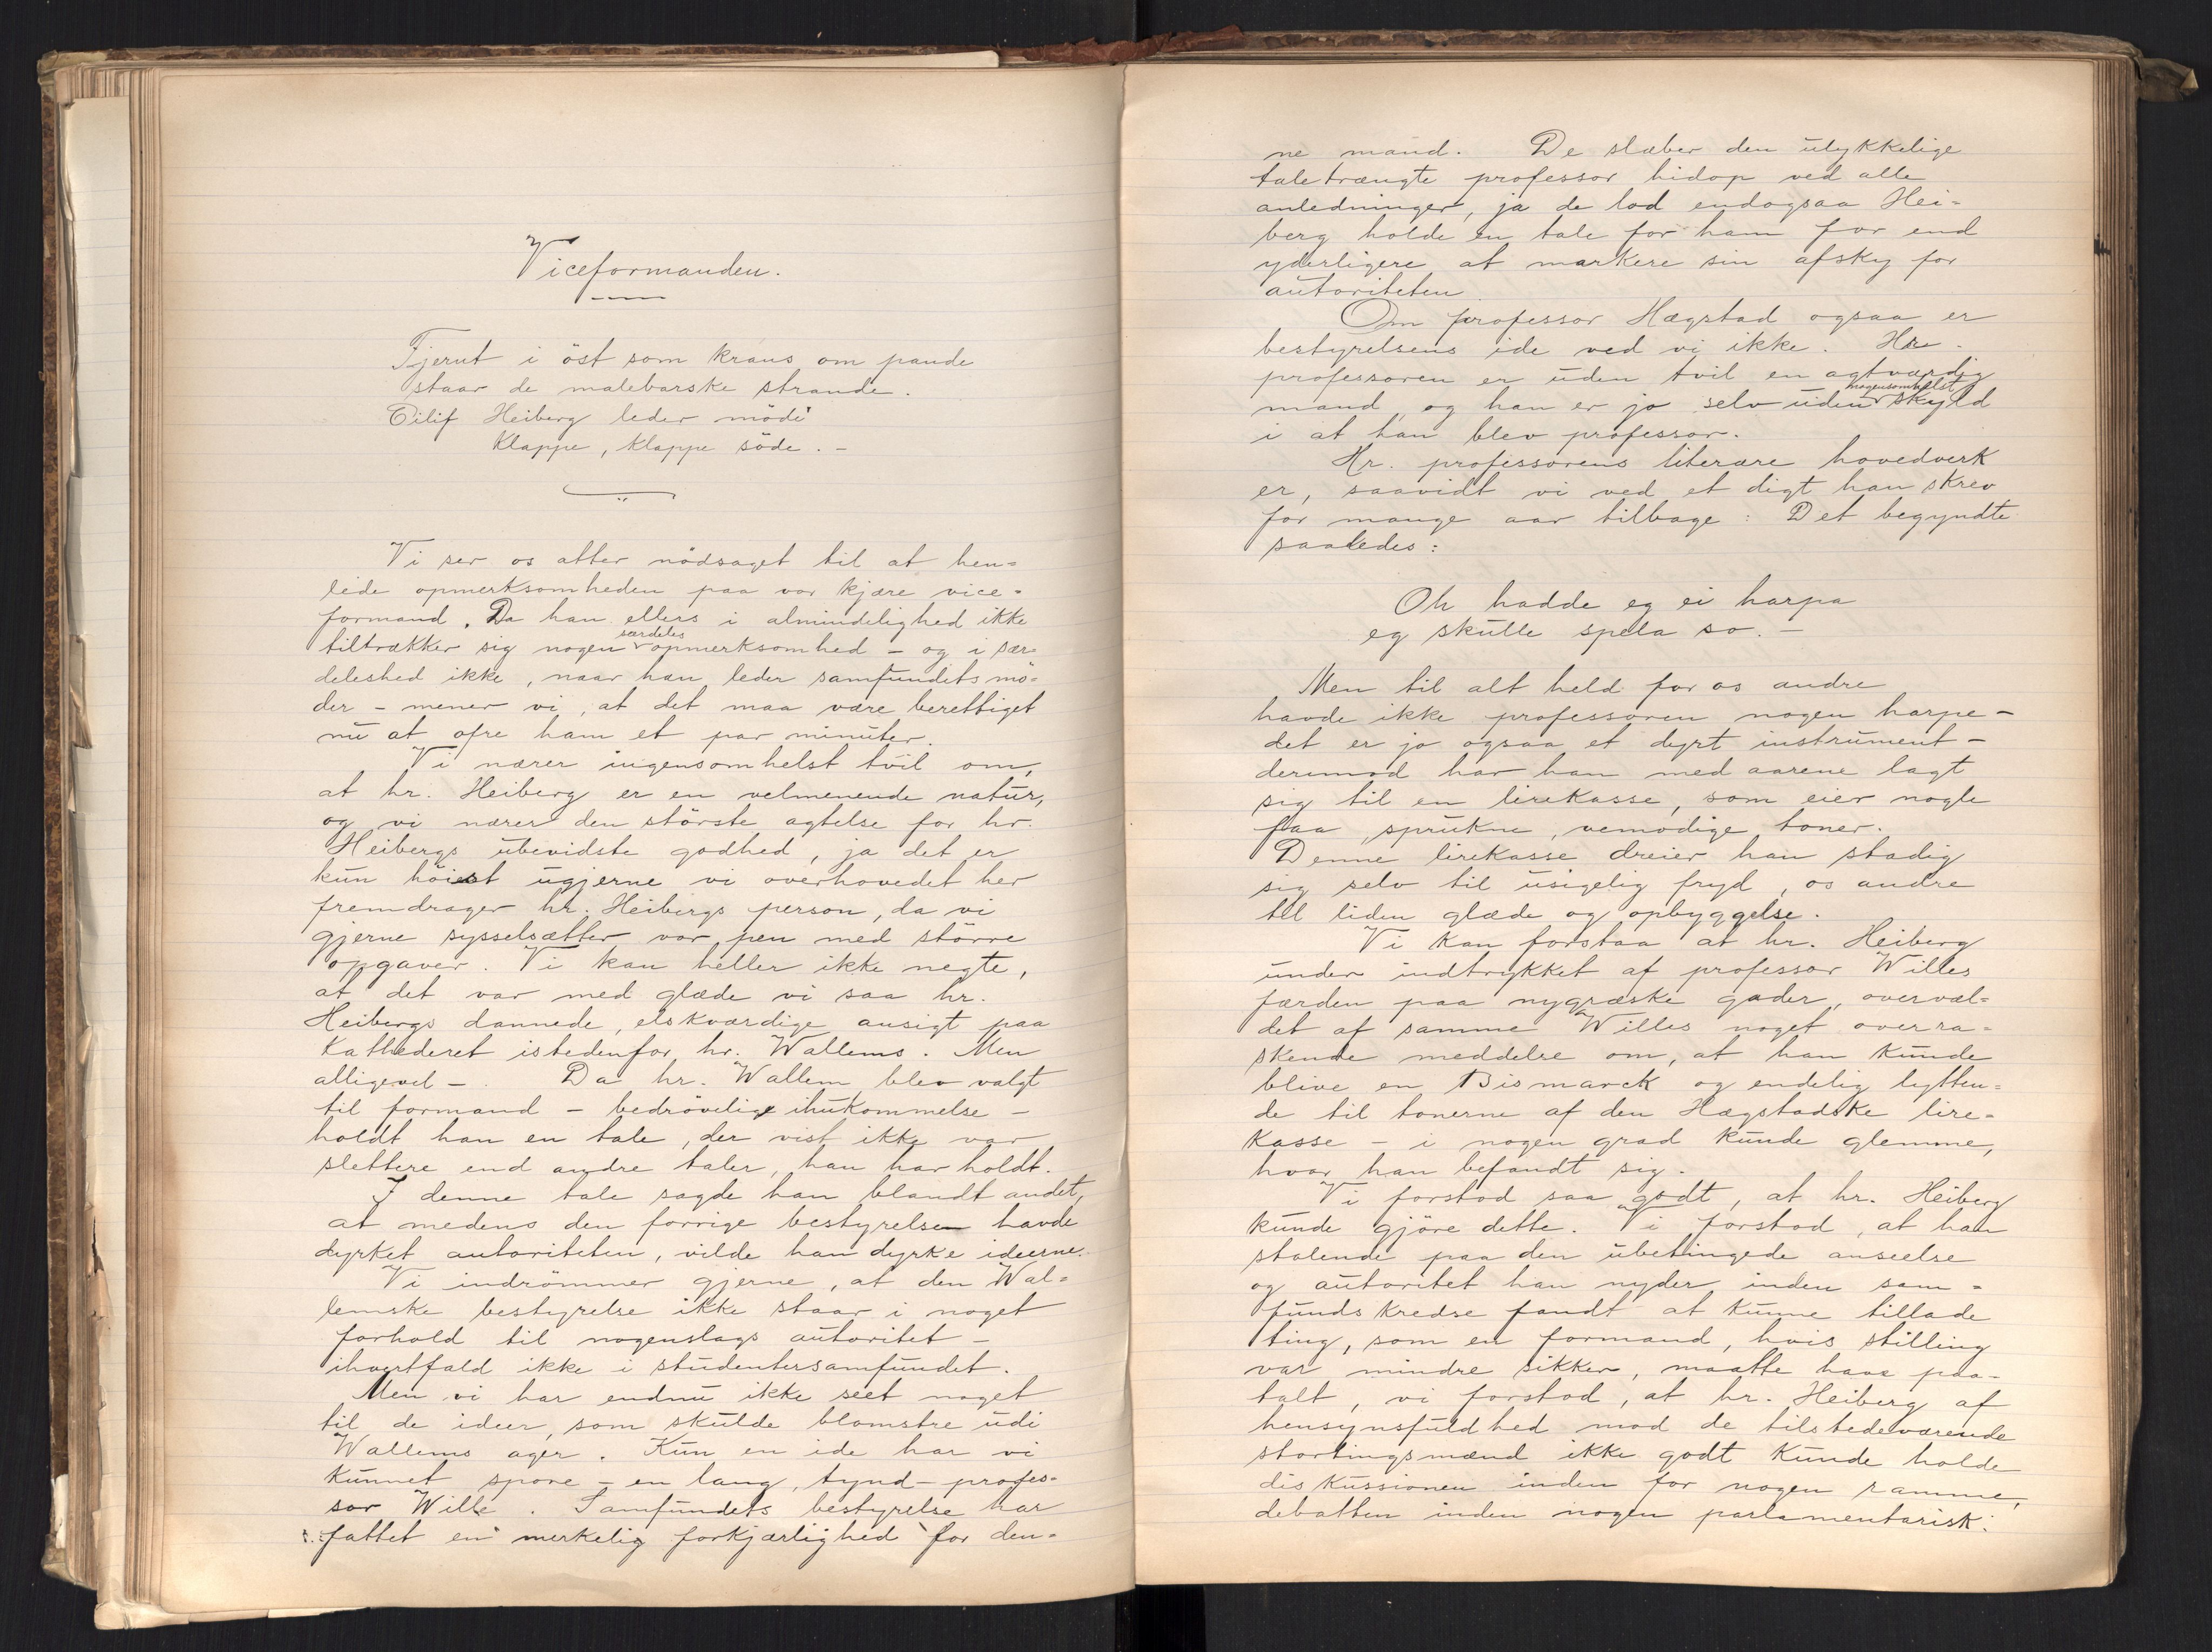 Viceformanden.
Fjernt i öst som krans om pande
staar de malebarske strande.
Eilif Heiberg leder möde
Klappe, klappe söde. -
Vi ser os atter nödsaget til at hen=
lede opmerksomheden paa vor kjære vice=
formand. Da han ellers i almindelighed ikke
særdeles
tiltrækker sig nogen opmerksomhed - og i sær=
deleshed ikke, naar han leder samfundets mö=
der - mener vi, at det maa være berettiget
nu at ofre ham et par minuter.
Vi nærer ingensomhelst tvil om,
at hr. Heiberg er en velmenende natur,
og vi nærer den störste agtelse for hr.
Heibergs ubevidste godhed, ja det er
kun höiest ugjerne vi overhovedet her
fremdrager hr. Heibergs person, da vi
gjerne sysselsætter vor pen med större
opgaver. Vi kan heller ikke negte,
at det var med glæde vi saa hr.
Heibergs dannede, elskværdige ansigt paa
Kathederet istedenfor hr. Wallems. Men
alligevel - Da hr. Wallem blev valgt
til formand - bedrövelig ihukommelse -
holdt han en tale, der vist ikke var
slettere end andre taler, han har holdt.
I denne tale sagde han blandt andet,
at medens den forrige bestyrelsen havde
dyrket autoriteten, vilde han dyrke ideerne.
Vi indrömmer gjerne, at den Wal=
lemske bestyrelse ikke staar i noget
forhold til nogenslags autoritet -
ihvertfald ikke i studentersamfundet.
Men vi har endnu ikke seet noget
til de ideer, som skulde blomstre udi
Wallems ager. Kun en ide har vi
kunnet spore - en lang, tynd - profes=
sor Wille. Samfundets bestyrelse har
fattet en merkelig forkjærlighed for den=
ne mand. De slæber den ulykkelige
taletrængte professor hidop ved alle
anledninger, ja de lod endogsaa Hei=
berg holde en tale for ham for end
yderligere at markere sin afsky for
autoriteten
Om professor Hægstad ogsaa er
bestyrelsens ide ved vi ikke. Hr.
professoren er uden tvil en agtværdig
nogensomhelst
mand og han er jo selv uden skyld
i at han blev professor.
Hr. professorens literære hovedverk
er, saavidt vi ved et digt han skrev
for mange aar tilbage: Det begyndte
saaledes:
Oh hadde eg ei harpa
eg skulle spela so. -
Men til alt held for os andre
havde ikke professoren nogen harpe -
det er jo ogsaa et dyrt instrument -
derimod har han med aarene lagt
sig til en lirekasse, som eier nogle
faa, sprukne, vemodige toner.
Denne lirekasse dreier han stadig
sig selv til usigelig fryd, os andre
til liden glæde og opbyggelse.
Vi kan forstaa at hr. Heiberg
under indtrykket af professor Willes
færden paa nygræske gader, overvæl=
det af samme Willes noget overra=
skende meddelse om, at han kunde
blive en Bismarck og endelig lytten=
de til tonerne af den Hægstadske lire=
kasse - i nogen grad kunde glemme,
hvor han befandt sig.
Vi forstod saa godt, at hr. Heiberg
kunde gjöre dette. Vi forstod, at han
stolende paa den ubetingede anseelse
og autoritet han nyder inden sam=
fundskredse fandt at kunne tillade
ting, som en formand, hvis stilling
var mindre sikker, maatte have paa-
talt, vi forstod, at hr. Heiberg af
hensynsfuldhed mod de tilstedeværende
stortingsmænd ikke godt kunde holde
diskussionen inden for nogen ramme,
debatten inden nogen parlamentarisk